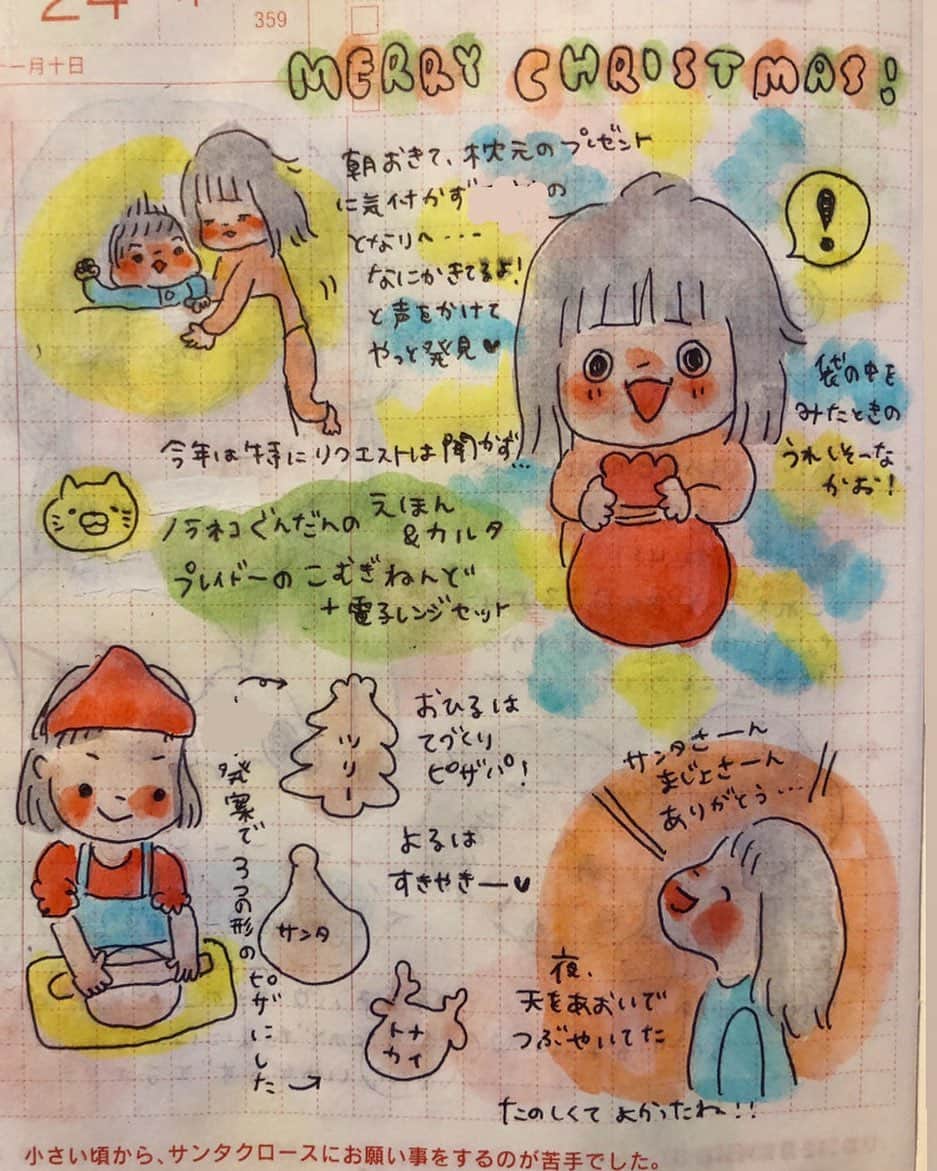 24
359
十一月十日
MERRY CHRISTMAS!
朝おきて、枕元のプレゼント
に気付かず の
となりへ・・・
なにかきてるよ!
と声をかけて
やっと発見♥
!
袋の中を
みたときの
うれしそーな
かお!
今年は特にリクエストは聞かず…
ノラネコぐんだんの えほん
&カルタ
プレイドーの こむぎねんど
+電子レンジセット
発案で3つの形のピザにした
ツリー
サンタ
トナ
カイ
おひるは
てづくり
ピザパ!
よるは
すきやきー♥
サンタさーん
まじょさーん
ありがとう…
夜、
天をあおいで
つぶやいてた
たのしくて よかったね!!
小さい頃から、サンタクロースにお願い事をするのが苦手でした。